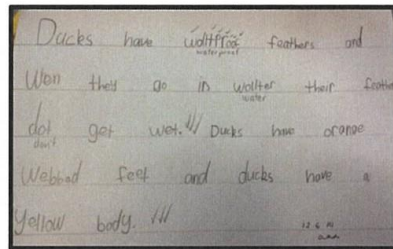 Ducks have woltfroof feathers and
waterproof
Wen they go in wollter their feathe
water
dot get wet. Ducks have orange
don't
Webbad feet and ducks have a
Yellow body.